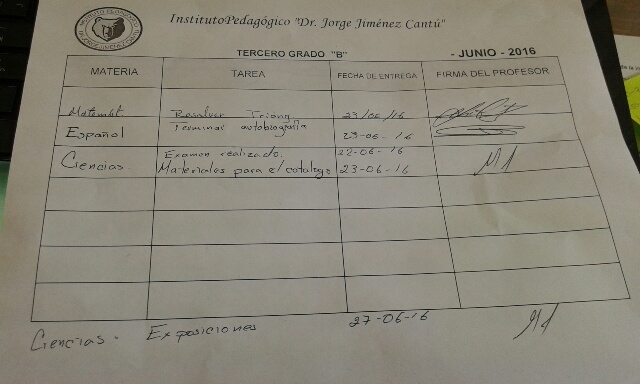 InstitutoPedagógico "Dr. Jorge Jiménez Cantú"
TERCERO GRADO "B" - JUNIO - 2016
MATERIA TAREA FECHA DE ENTREGA FIRMA DEL PROFESOR
Matemát. Resolver Triáng 23/06/16
Español Terminar autobiografía 23-06-16
Ciencias. Examen realizado. 22-06-16
Materiales para el catálogo 23-06-16
Ciencias. Exposiciones 27-06-16